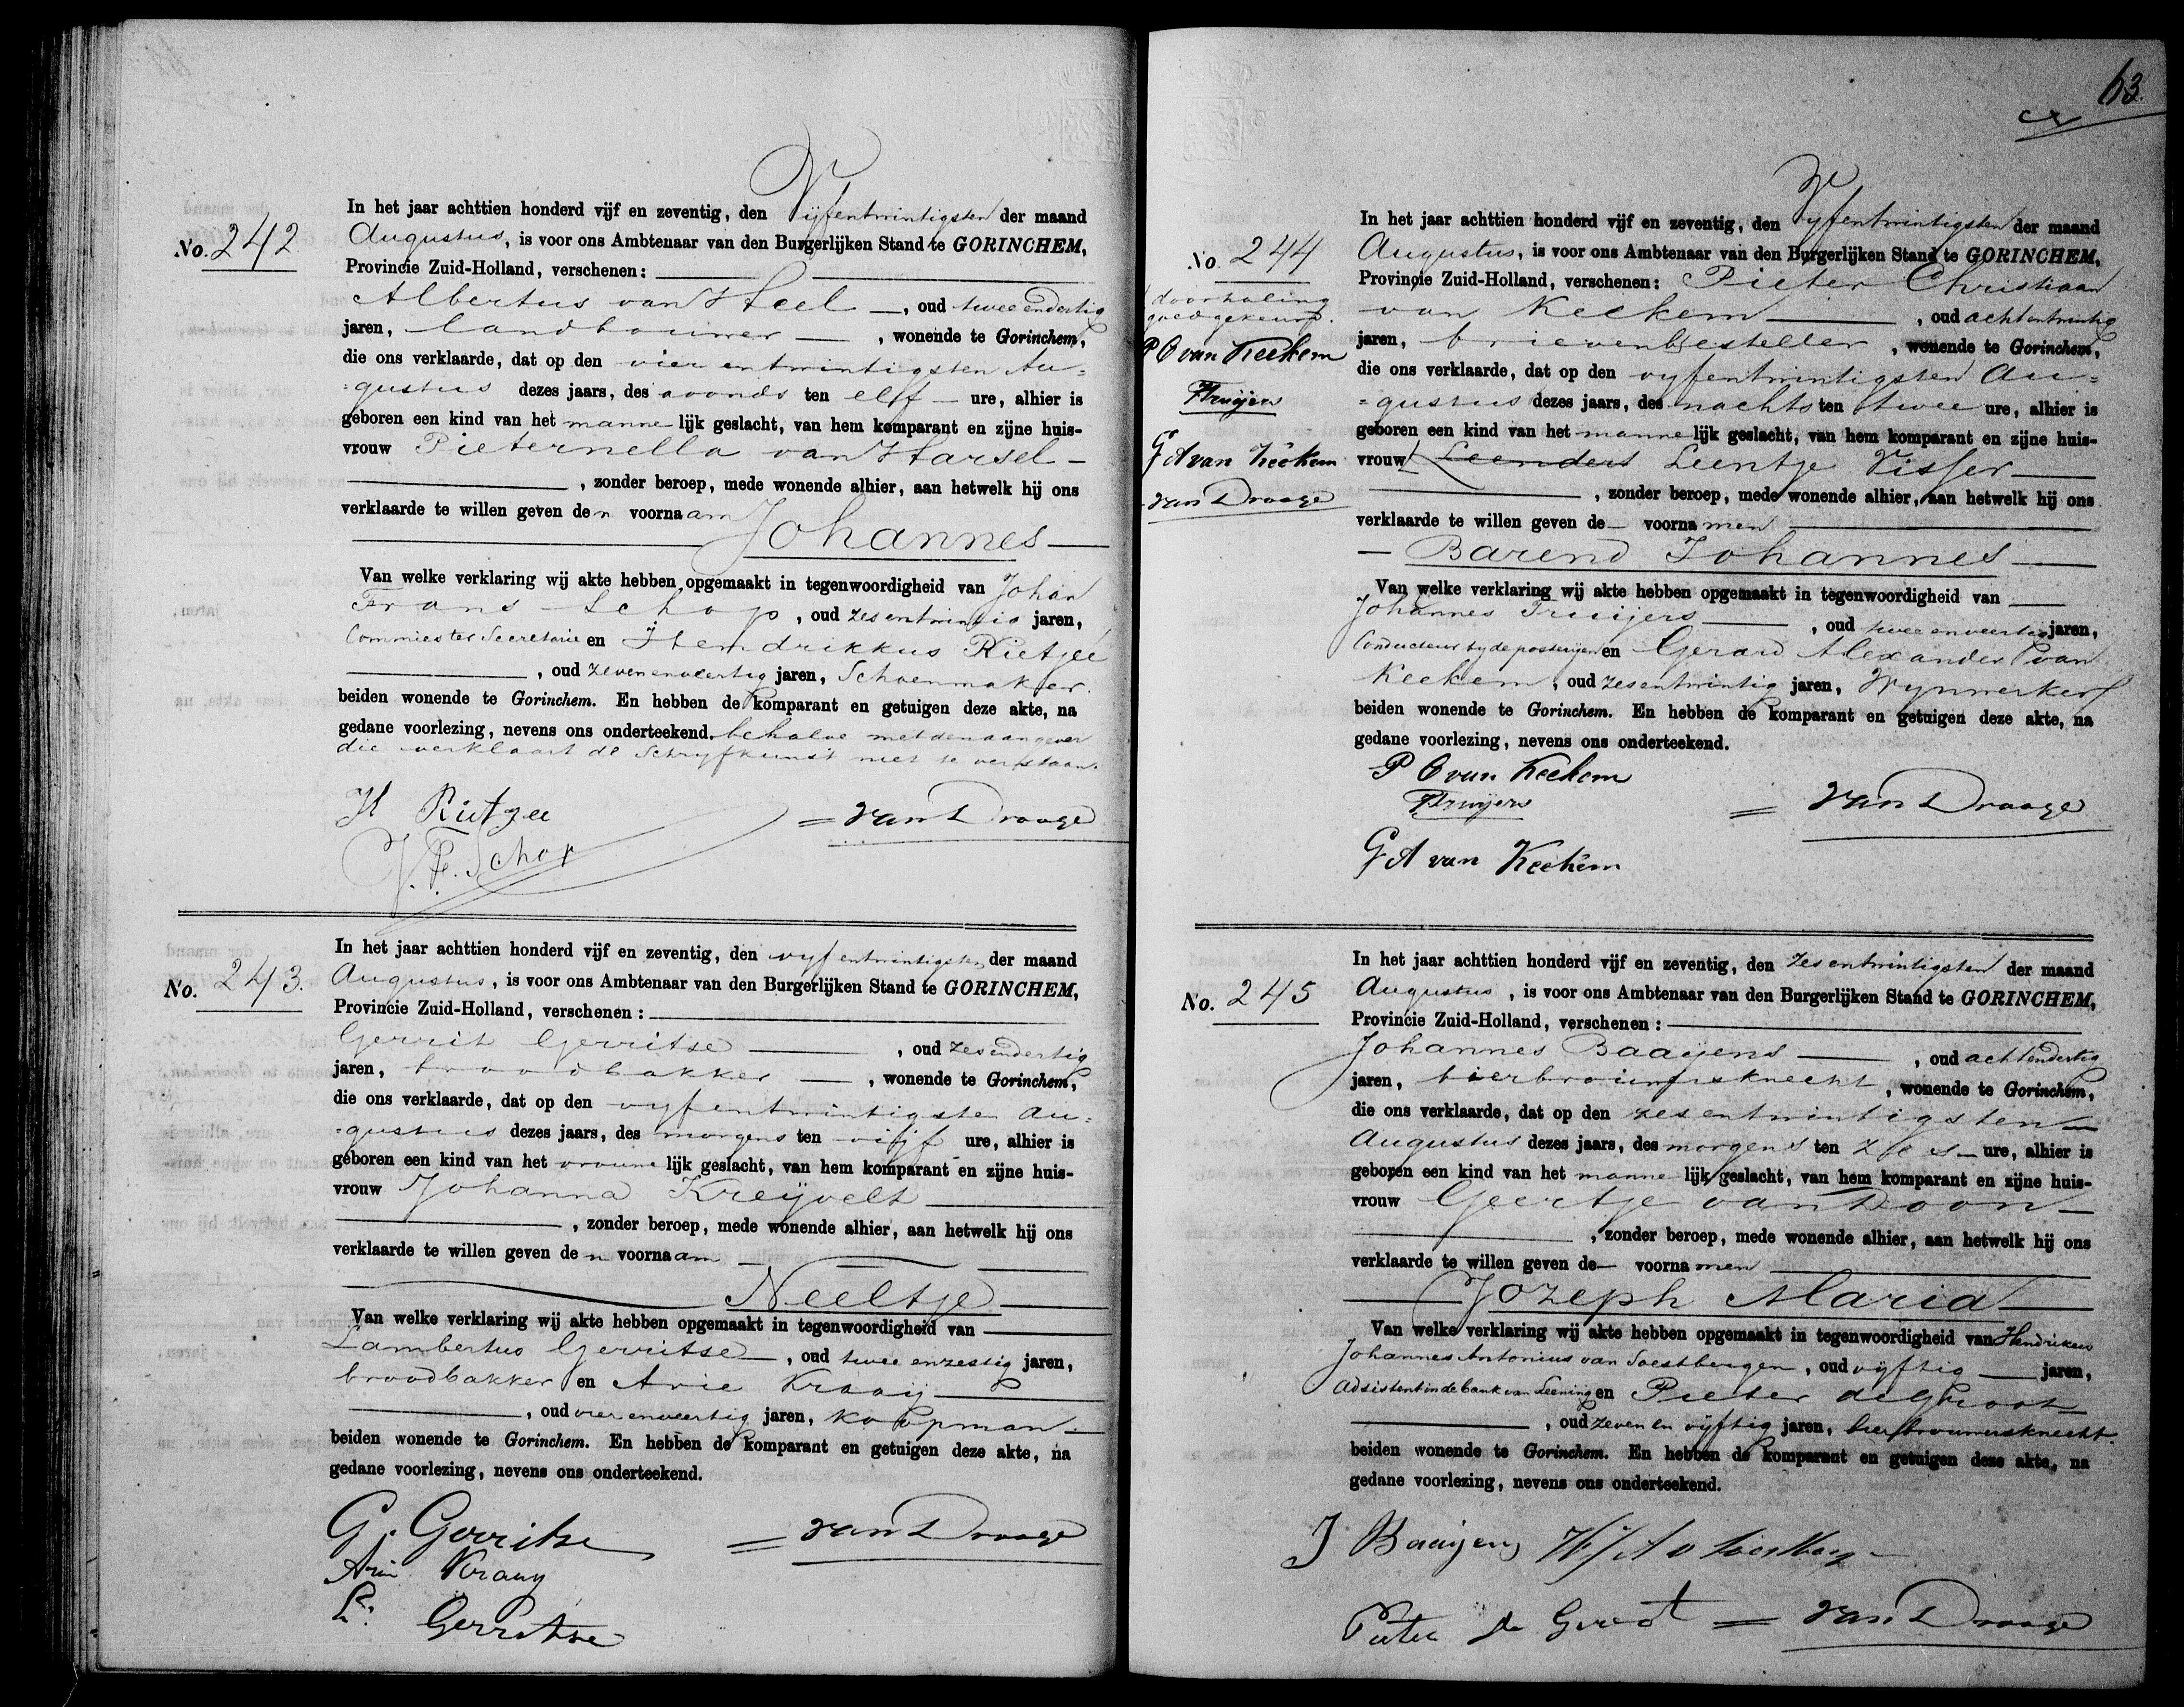 No. 242.
In het jaar achttien honderd vijf en zeventig, den Vijfentwintigsten der maand
Augustus, is voor ons Ambtenaar van den Burgerlijken Stand te GORINCHEM,
Provincie Zuid-Holland, verschenen:
Albertus van Steel, oud twee endertig
jaren, landbouwer, wonende te Gorinchem,
die ons verklaarde, dat op den vier entwintigsten Au=
=gustus dezes jaars, des avonds ten elf ure, alhier is
geboren een kind van het mannelijk geslacht, van hem komparant en zijne huis-
vrouw Pieternella van Harsel
, zonder beroep, mede wonende alhier, aan hetwelk hij ons
verklaarde te willen geven den voornaam
Johannes
Van welke verklaring wij akte hebben opgemaakt in tegenwoordigheid van Johan
Frans Schop, oud zesentwintig jaren,
Commies ter Secretarie en Hendrikkus Rietzee
, oud zevenenveertig jaren, Schoenmaker.
beiden wonende te Gorinchem. En hebben de komparant en getuigen deze akte, na
gedane voorlezing, nevens ons onderteekend. behalve met den aangever
die verklaart de Schryfkunst niet te verstaan.
H Rietzee
= van Draage
J. F. Schop
No. 243.
In het jaar achttien honderd vijf en zeventig, den vyfentwintigsten der maand
Augustus, is voor ons Ambtenaar van den Burgerlijken Stand te GORINCHEM,
Provincie Zuid-Holland, verschenen:
Gerrit Gerritse, oud zesendertig
jaren, broodbakker, wonende te Gorinchem,
die ons verklaarde, dat op den vyfentwintigsten Au=
=gustus dezes jaars, des morgens ten vijf ure, alhier is
geboren een kind van het vrouwelijk geslacht, van hem komparant en zijne huis-
vrouw Johanna Kreyvelt
, zonder beroep, mede wonende alhier, aan hetwelk hij ons
verklaarde te willen geven den voornaam
Neeltje
Van welke verklaring wij akte hebben opgemaakt in tegenwoordigheid van
Lambertus Gerritse, oud twee enzestig jaren,
broodbakker en Arie Kraaij
, oud vier enveertig jaren, koopman.
beiden wonende te Gorinchem. En hebben de komparant en getuigen deze akte, na
gedane voorlezing, nevens ons onderteekend.
G. Gerritse
= van Draage
Arie Kraaij
L. Gerritse
63.
No. 244
doorhaling
goedgekeurd.
P C van Keekem
JTruijers
G A van Keekem
van Draage
In het jaar achttien honderd vijf en zeventig, den Vyfentwintigsten der maand
Augustus, is voor ons Ambtenaar van den Burgerlijken Stand te GORINCHEM,
Provincie Zuid-Holland, verschenen: Pieter Christiaan
van Keekem, oud achtentwintig
jaren, brievenbesteller, wonende te Gorinchem,
die ons verklaarde, dat op den vyfentwintigsten Au=
=gustus dezes jaars, des nachts ten twee ure, alhier is
geboren een kind van het mannelijk geslacht, van hem komparant en zijne huis-
vrouw Leendert Leentje Visser
, zonder beroep, mede wonende alhier, aan hetwelk hij ons
verklaarde te willen geven de voornamen
Barend Johannes
Van welke verklaring wij akte hebben opgemaakt in tegenwoordigheid van
Johannes Truijers, oud twee enveertig jaren,
Conducteur by de posteryen en Gerard Alexander van
Keekem, oud zesentwintig jaren, Wynwerker
beiden wonende te Gorinchem. En hebben de komparant en getuigen deze akte, na
gedane voorlezing, nevens ons onderteekend.
P C van Keekem
JTruijers
= van Draage
G A van Keekem
No. 245
In het jaar achttien honderd vijf en zeventig, den zesentwintigsten der maand
Augustus, is voor ons Ambtenaar van den Burgerlijken Stand te GORINCHEM,
Provincie Zuid-Holland, verschenen:
Johannes Baaijens, oud achtendertig
jaren, bierbrouwersknecht, wonende te Gorinchem,
die ons verklaarde, dat op den zesentwintigsten
Augustus dezes jaars, des morgens ten zes ure, alhier is
geboren een kind van het mannelijk geslacht, van hem komparant en zijne huis-
vrouw Geertje van Doorn
, zonder beroep, mede wonende alhier, aan hetwelk hij ons
verklaarde te willen geven de voornamen
Jozeph Maria
Van welke verklaring wij akte hebben opgemaakt in tegenwoordigheid van Hendrikus
Johannes Antonius van Soestbergen, oud vyftig jaren,
Adsistent in de bank van Leening en Pieter de Groot
, oud zeven en vyftig jaren, bierbrouwersknecht.
beiden wonende te Gorinchem. En hebben de komparant en getuigen deze akte, na
gedane voorlezing, nevens ons onderteekend.
J Baaijens H J A v Soestbergen
Pieter de Groot = van Draage